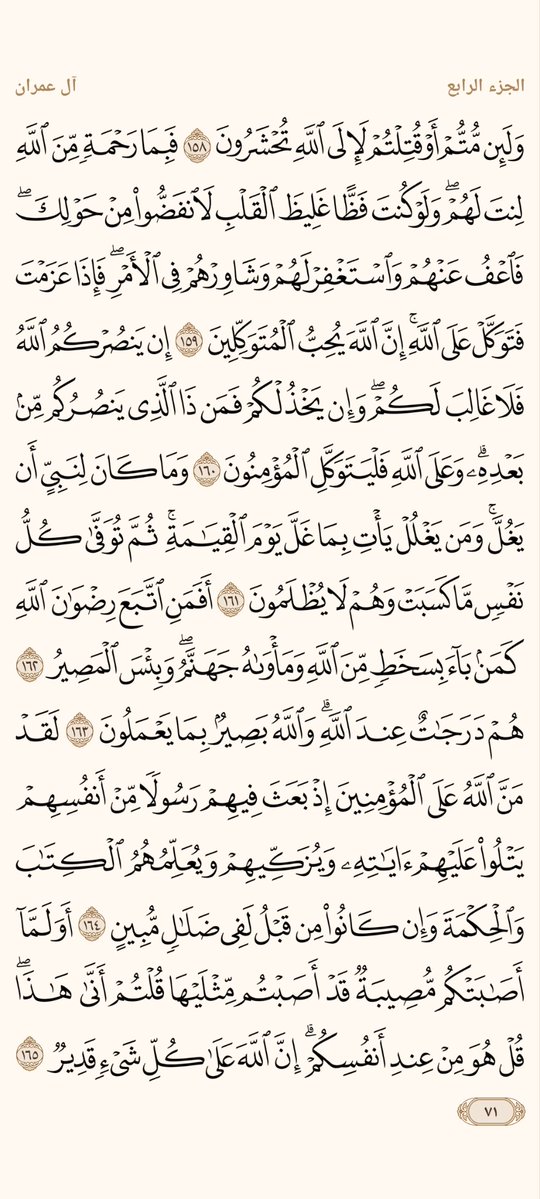 الجزء الرابع
آل عمران
وَلَئِن مُّتُّمْ أَوْ قُتِلْتُمْ لَإِلَى ٱللَّهِ تُحْشَرُونَ ١٥٨ فَبِمَا رَحْمَةٍ مِّنَ ٱللَّهِ
لِنتَ لَهُمْۖ وَلَوْ كُنتَ فَظًّا غَلِيظَ ٱلْقَلْبِ لَٱنفَضُّوا۟ مِنْ حَوْلِكَۖ
فَٱعْفُ عَنْهُمْ وَٱسْتَغْفِرْ لَهُمْ وَشَاوِرْهُمْ فِى ٱلْأَمْرِۖ فَإِذَا عَزَمْتَ
فَتَوَكَّلْ عَلَى ٱللَّهِۚ إِنَّ ٱللَّهَ يُحِبُّ ٱلْمُتَوَكِّلِينَ ١٥٩ إِن يَنصُرْكُمُ ٱللَّهُ
فَلَا غَالِبَ لَكُمْۖ وَإِن يَخْذُلْكُمْ فَمَن ذَا ٱلَّذِى يَنصُرُكُم مِّنۢ
بَعْدِهِۦۗ وَعَلَى ٱللَّهِ فَلْيَتَوَكَّلِ ٱلْمُؤْمِنُونَ ١٦٠ وَمَا كَانَ لِنَبِىٍّ أَن
يَغُلَّۚ وَمَن يَغْلُلْ يَأْتِ بِمَا غَلَّ يَوْمَ ٱلْقِيَـٰمَةِۚ ثُمَّ تُوَفَّىٰ كُلُّ
نَفْسٍ مَّا كَسَبَتْ وَهُمْ لَا يُظْلَمُونَ ١٦١ أَفَمَنِ ٱتَّبَعَ رِضْوَٰنَ ٱللَّهِ
كَمَنۢ بَآءَ بِسَخَطٍ مِّنَ ٱللَّهِ وَمَأْوَىٰهُ جَهَنَّمُۖ وَبِئْسَ ٱلْمَصِيرُ ١٦٢
هُمْ دَرَجَـٰتٌ عِندَ ٱللَّهِۗ وَٱللَّهُ بَصِيرٌۢ بِمَا يَعْمَلُونَ ١٦٣ لَقَدْ
مَنَّ ٱللَّهُ عَلَى ٱلْمُؤْمِنِينَ إِذْ بَعَثَ فِيهِمْ رَسُولًا مِّنْ أَنفُسِهِمْ
يَتْلُوا۟ عَلَيْهِمْ ءَايَـٰتِهِۦ وَيُزَكِّيهِمْ وَيُعَلِّمُهُمُ ٱلْكِتَـٰبَ
وَٱلْحِكْمَةَ وَإِن كَانُوا۟ مِن قَبْلُ لَفِى ضَلَـٰلٍ مُّبِينٍ ١٦٤ أَوَلَمَّآ
أَصَـٰبَتْكُم مُّصِيبَةٌ قَدْ أَصَبْتُم مِّثْلَيْهَا قُلْتُمْ أَنَّىٰ هَـٰذَاۖ
قُلْ هُوَ مِنْ عِندِ أَنفُسِكُمْۗ إِنَّ ٱللَّهَ عَلَىٰ كُلِّ شَىْءٍ قَدِيرٌ ١٦٥
٧١